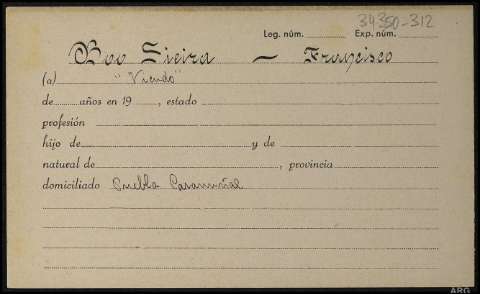 34350-312
Leg. núm. Exp. núm.
Boo Sieira — Francisco
(a) "Viendo"
de años en 19 , estado
profesión
hijo de y de
natural de , provincia
domiciliado Puebla Caramiñal
ARG